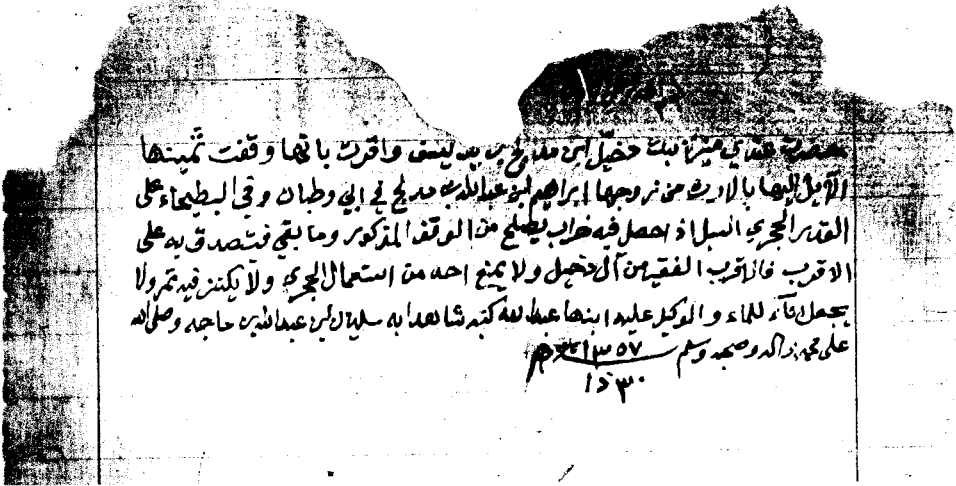 حضرت عندي ميثا بنت دخيل ابن مدلج بن واقرت بانها وقفت ثمينها
الآيل إليها بالارث من زوجها إبراهيم ابن عبدالله بن مدلج في ابي وطبان وفي البطيحاء على
القدير الجري السبل اذا حصل فيه خراب يصلح من الوقف المذكور وما بقي فيتصدق به على
الاقرب فالاقرب الفقير من آل دخيل ولا يمنع احد من استعمال الجري ولا يكنز فيه تمر ولا
يجعل للماء والوكيل عليه ابنها عبدالله كتبه شاهدا به سليمان ابن عبدالله بن حاجه وصلى الله
على محمد واله وصحبه وسلم ١٣٥٧
٣٠ ذا